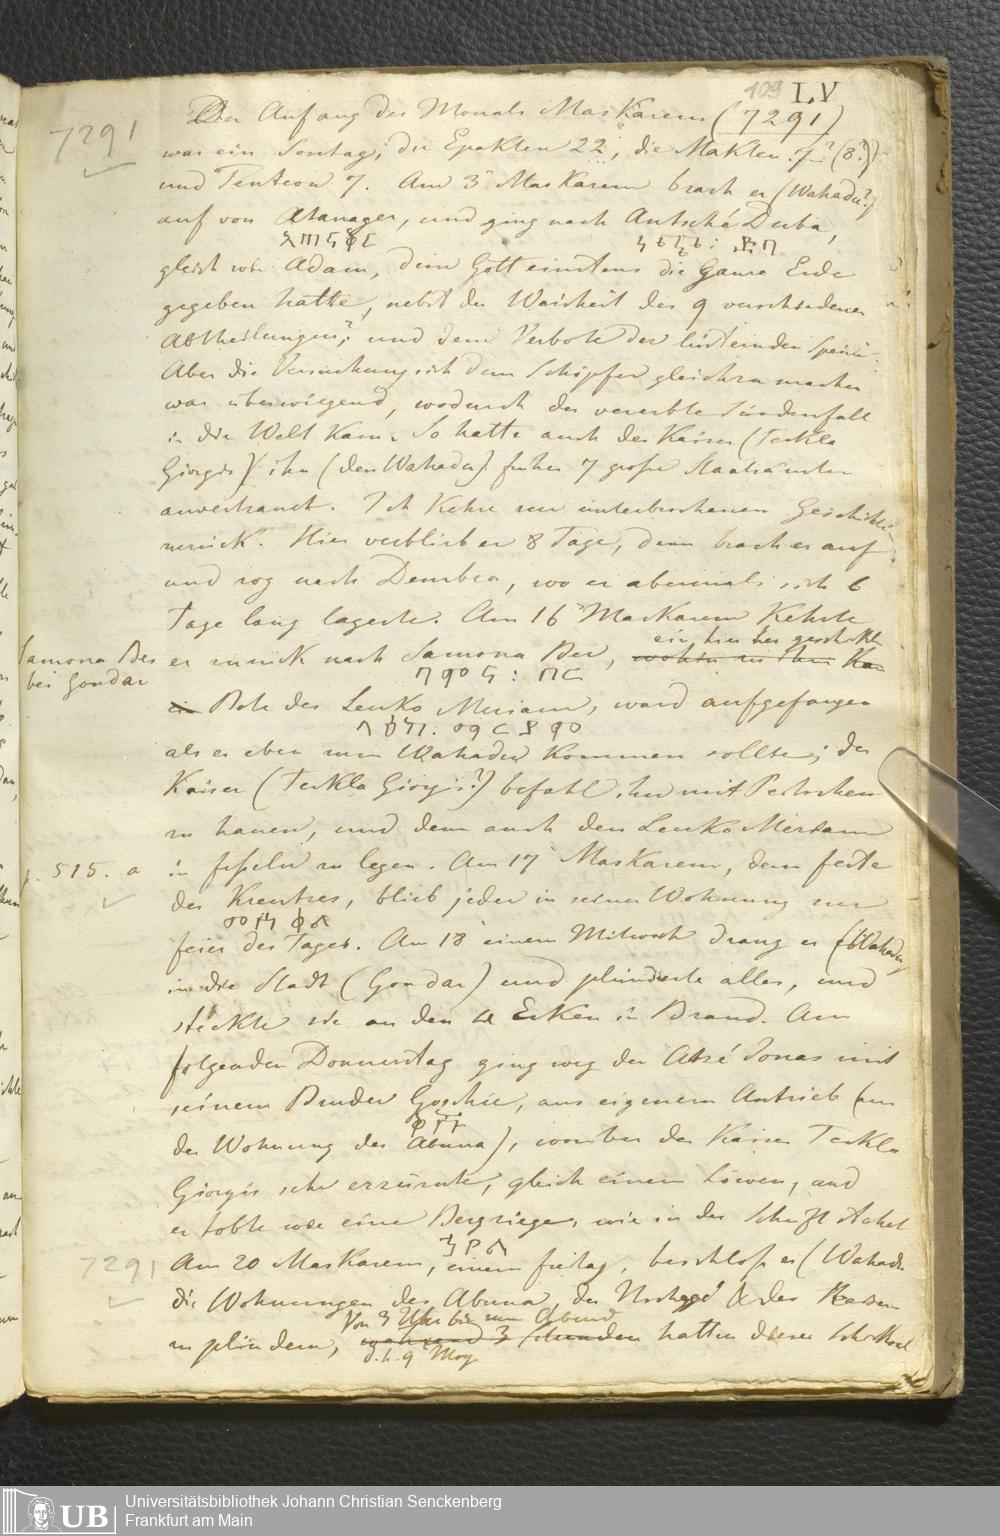 109 LV
7291
Der Anfang des Monats Maskarem (7291)
war ein Sontag; die Epakten 22, die Makten 7? (8?)
und Tenteon 7. Am 3 Maskarem brach er (Wahadu?)
auf von Atanager, und ging nach Antschá Duba,
gleich wie Adam, dem Gott einstens die Ganze Erde
gegeben hatte, nebst der Waisheit der 9 verschiedenen
Abtheilungen?, und dem Verbote der
Aber die Versuchung sich dem Schöpfer gleichzumachen
war überwiegend, wodurch der vererbte Sündenfall
in die Welt kam. So hatte auch der Kaiser (Teckla
Giorgis) ihn (den Wahadu) früher 7 große Staatsämter
anvertraut. Ich kehre zur unterbrochenen Geschichte
zurück. Hier verblieb er 8 Tage, dann brach er auf
und zog nach Dembea, wo er abermals sich 6
Tage lang lagerte. Am 16 Maskarem kehrte
Samona Ber
bei Gondar
er zurück nach Samona Ber, ein hier her geschickter
በምና : በር
Bote des Leuko Meriam, ward aufgefangen
als er eben zum Wahadu kommen sollte; der
Kaiser (Teckla Giorgis?) befahl ihn mit Peitschen
zu hauen, und dem auch den Leuko Meriam
p. 515. a
in feßeln zu legen. Am 17 Maskarem, dem feste
des Kreutzes, blieb jeder in seiner Wohnung zur
መስቀል
feier des Tages. Am 18 einem Mitwoch drang er (Wahadu)
in die Stadt (Gondar) und plünderte alles, und
steckte sie an den 4 Ecken in Brand. Am
folgenden Donnerstag ging weg der Atsé Jonas mit
seinem Bruder Goschie, aus eigenem Antrieb (aus
der Wohnung des Abuna), worüber der Kaiser Teckla
Giorgis sehr erzürnte, gleich einem Löwen, und
er tobte wie eine Bergziege, wie in der Schrift stehet
7291
Am 20 Maskarem, einem freitag, beschloß er (Wahadu
die Wohnungen des Abuna, des Itschegé & des Raisen
zu plündern, Von 3 Uhr bis zum Abend
während 3 Stunden hatten dieses Schicksal
d.h. 9 Morg
UB Universitätsbibliothek Johann Christian Senckenberg
Frankfurt am Main